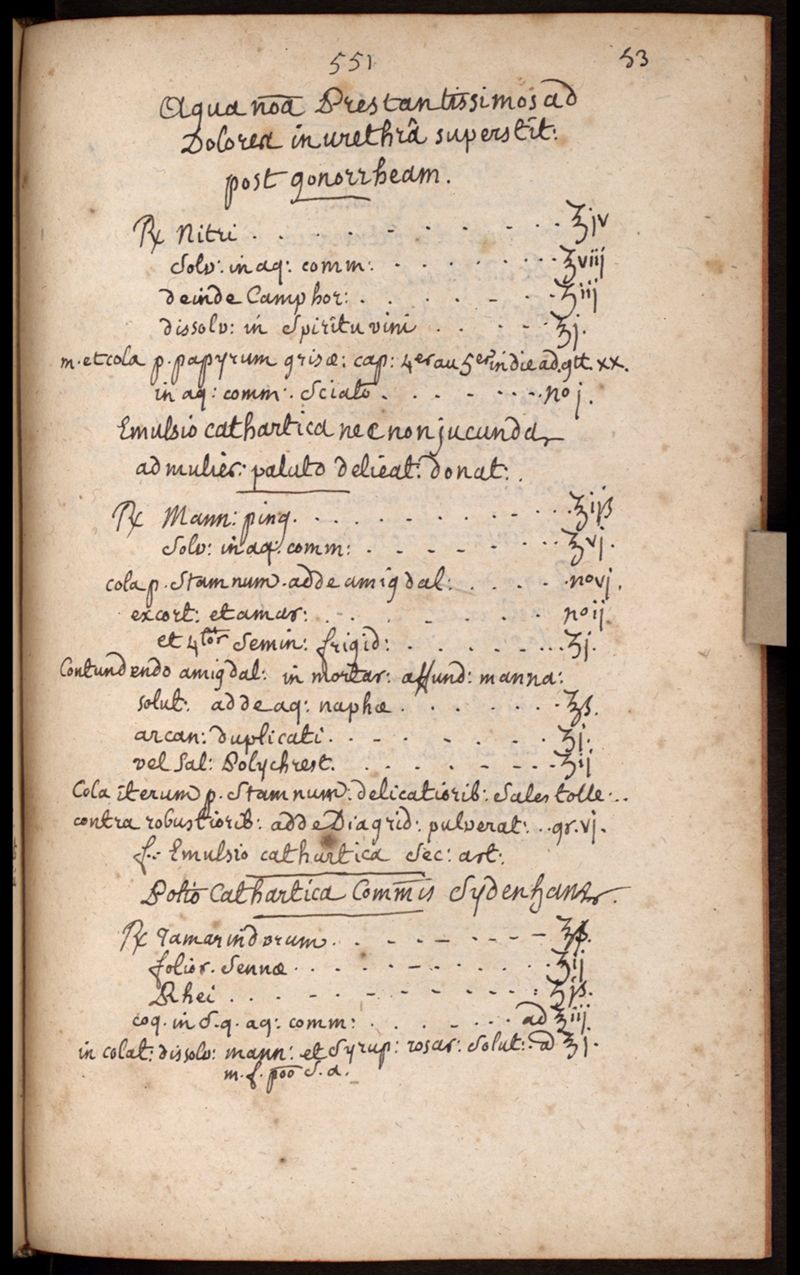 551 53
Aqua nōa Prestantissimos ad
Dolorea in urethrâ superstit:
post gonorrheam.
℞ Nitri . . . . . . . . . . ʒiv
Solv: in aq: comm: . . . . . . . ℥viii
deinde Camphor: . . . . . . ʒiii
dissolv: in Spiritu vini . . . . ℥j.
m. et cola p. papyrum grisæ: cap: 4er au 5er in die ad gtt. xx.
in aq: comm: Sciato . . . . . . . no j.
Emulsio cathartica nec non jucunda
ad mulier: palato delicat: donat:.
℞ Mann: ping. . . . . . . . . . . ℥iß
Solv: in aq: comm: . . . . . ℥vj.
cola p. Stamnum. adde amigdal: . . . . no vj.
excort: et amar: . . . . . . . no ij.
et 4tor Semin: frigid: . . . . . . . . ʒj.
Contundendo amigdal: in mortar: affund: manna:
solut: adde aq: naphæ . . . . . . . ℥ß.
arcan: duplicati . . . . . . . ʒj.
vel Sal: Polychrest. . . . . . . . . ʒij
Cola iterum p. Stamnum: delicatiorib: Sales tolle..
contra robustiorib: adde Diagrid: pulverat: .. gr. vj.
f. Emulsio cathartica Sec: art:
Potio Cathartica Comm̄is Sydenham.
℞ Tamarindorum . . . . . . . . . ℥ß.
folior. Sennæ . . . . . . . . . . . ʒij
Rhei . . . . . . . . . . ʒjß.
coq. in S.q. aq: comm: . . . . . . . ad ℥iij
in colat: dissolv: mann: et Syrup: rosar: Solut: ad ℥j.
m. f. poo S. a.